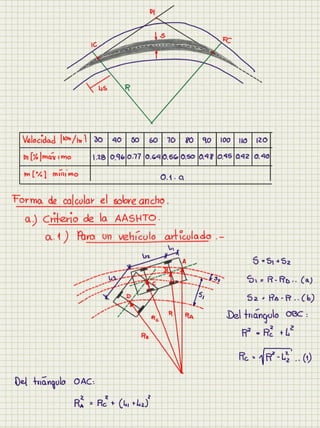 PI
IC
S
FC
45
R
Velocidad [km/h] 30 40 50 60 70 80 90 100 110 120
m [%] máximo 1.28 0.96 0.77 0.64 0.56 0.50 0.48 0.45 0.42 0.40
m [%] mínimo 0.1·a
Forma de calcular el sobreancho.
a.) Criterio de la AASHTO.
a.1) Para un vehículo articulado.-
L1
L2
A
B
C
D
S2
S1
L2
RC
R
RA
S = S1 + S2
S1 = R - RD .. (a)
S2 = RA - R .. (b)
Del triángulo OBC:
R² = RC² + L²
RC = √R² - L2² .. (1)
Del triángulo OAC:
RA² = RC² + (L1 + L2)²